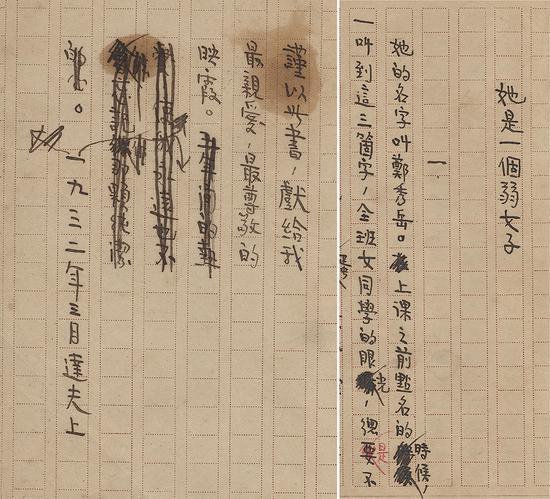 謹以此書,獻給我
最親愛,最尊敬的
映霞。
一九三二年三月達夫上
她是一個弱女子
一
她的名字叫鄭秀岳。上課之前點名的時候,
一叫到這三箇字,全班女同學的眼光,總要不